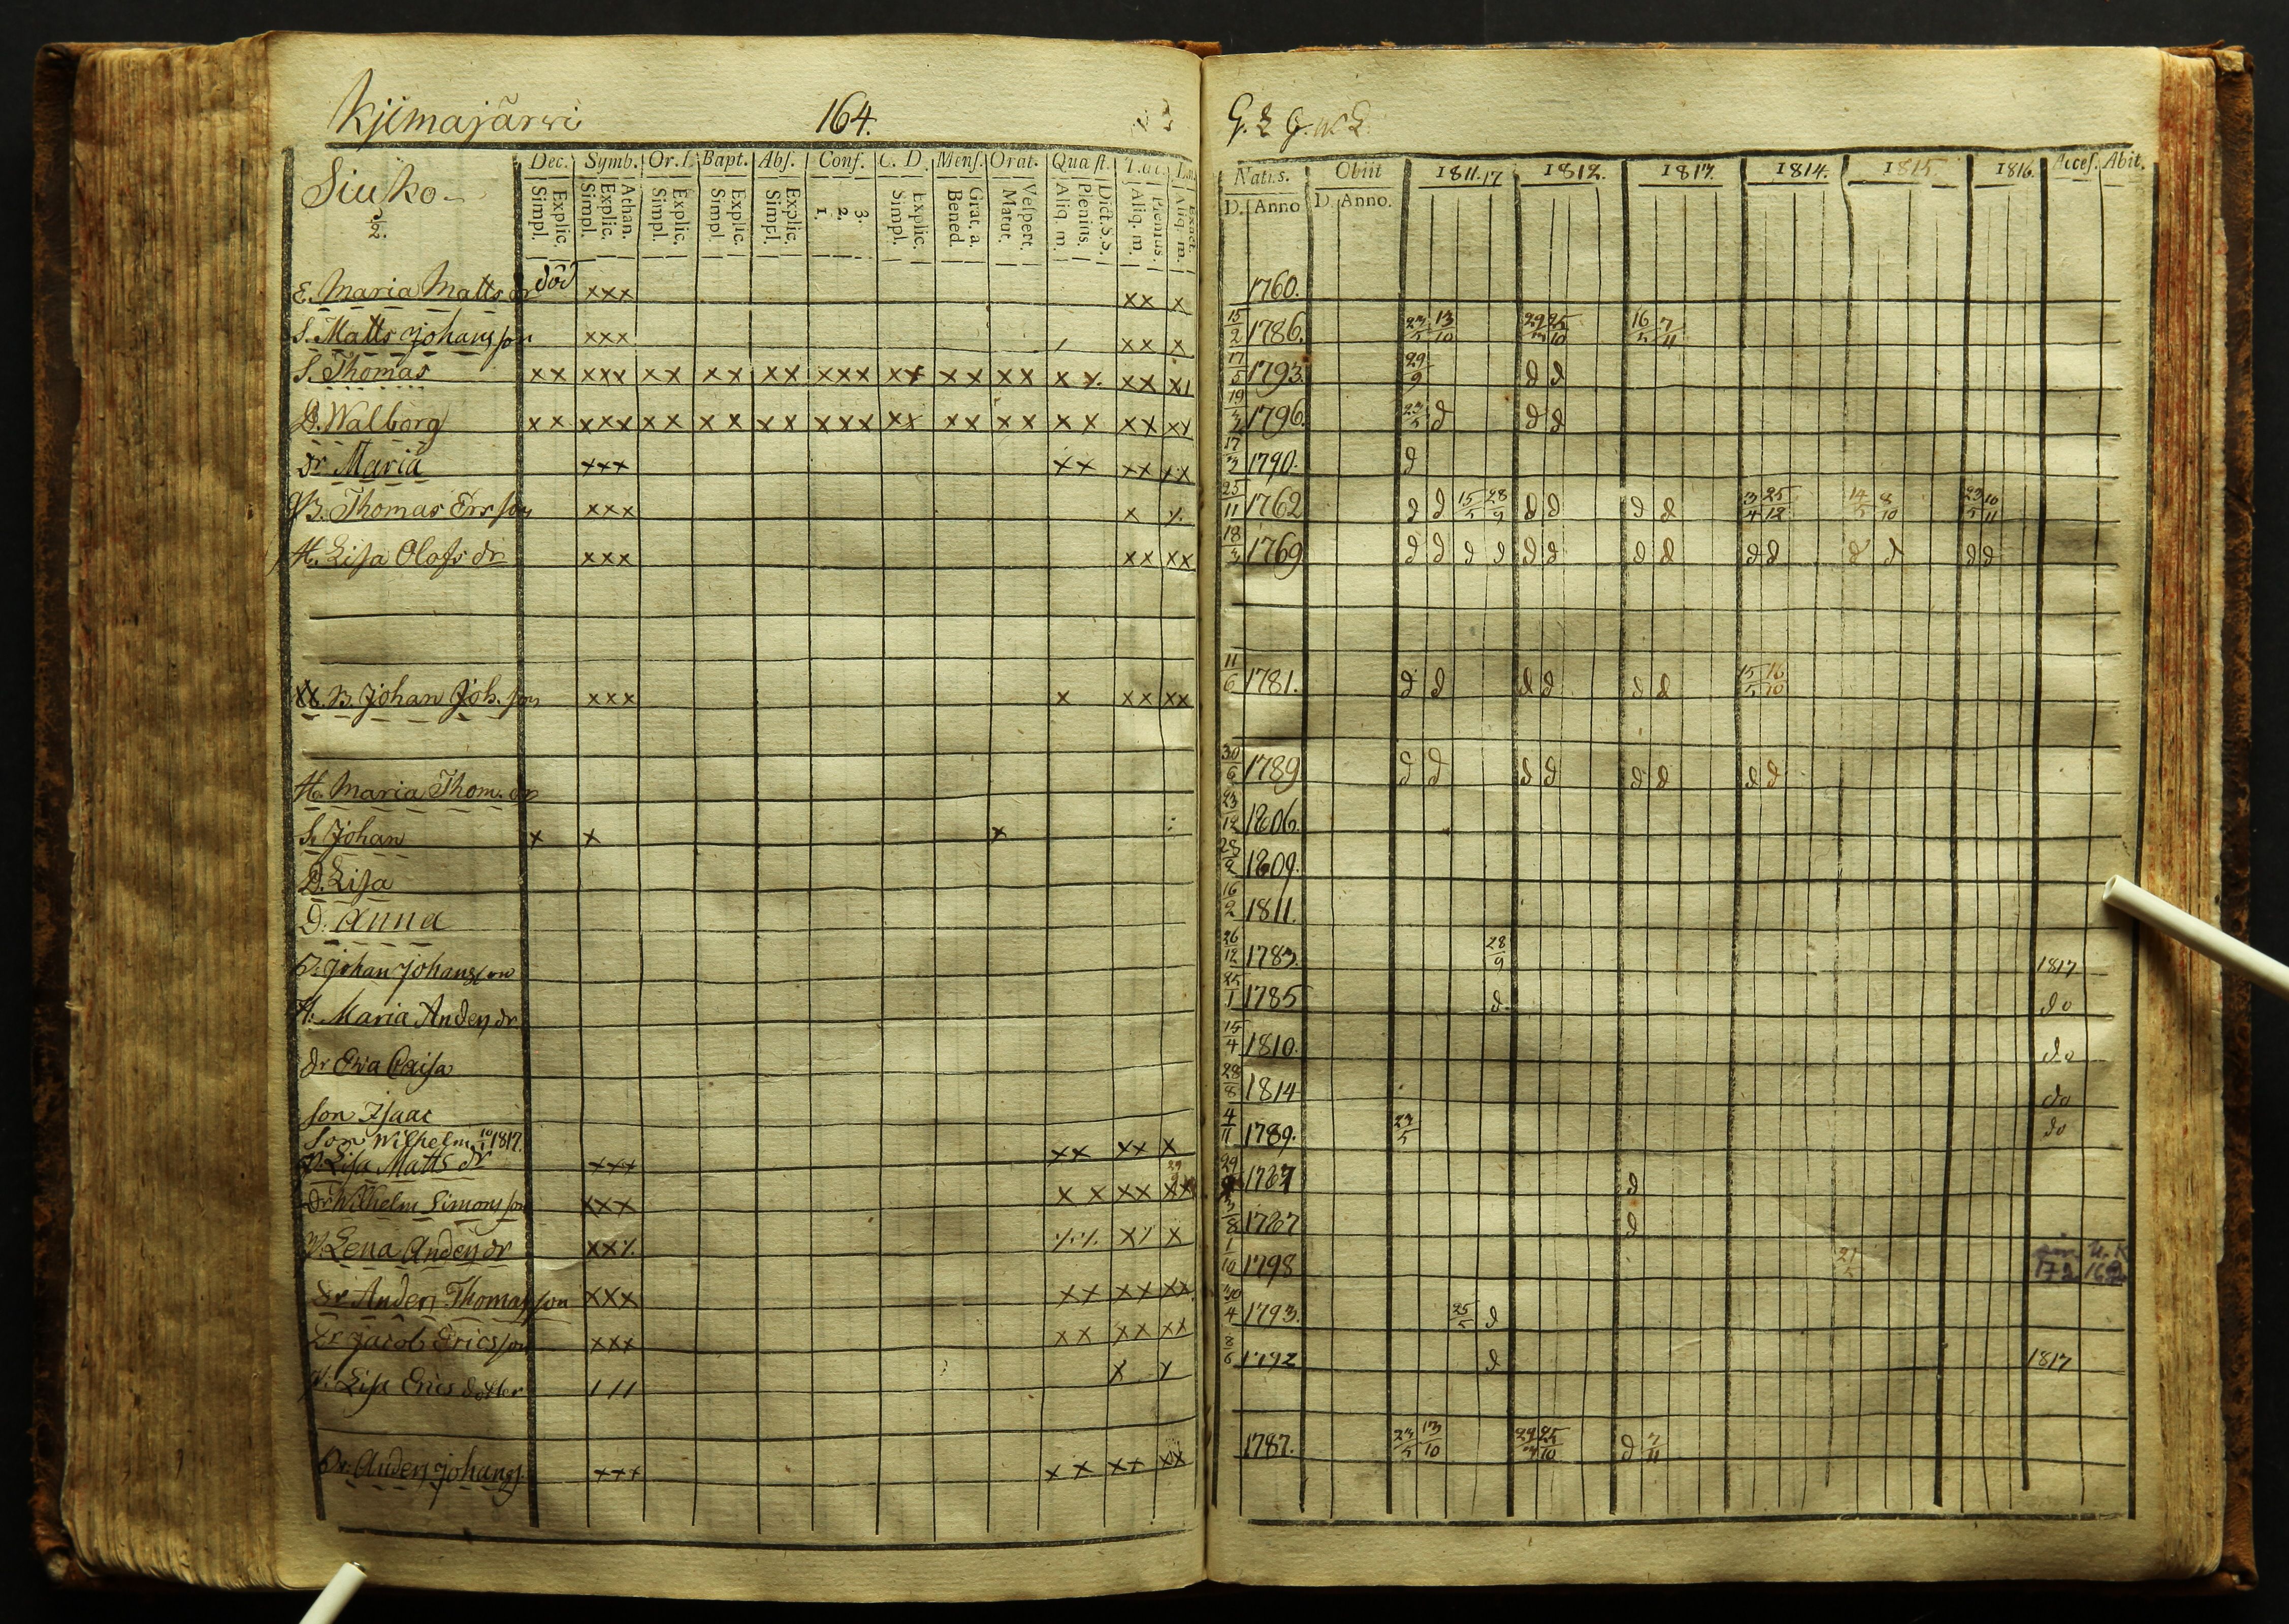 Kjimajärwi 164.
Siuko
Dec. Symb. Or. Bapt. Abs. Conf. C. D. Mens. Orat. Quæst.
Explic. Simpl. Athan. Explic. Simpl. Explic. Simpl. Explic. Simpl. Explic. Simpl. 3. 2. 1. Explic. Simpl. Grat. a. Bened. Vespert. Matut. Dict. S. S. Plenius. Aliq. m. Plenius. Aliq. m. Exact. Aliq. m.
E. Maria Matts dr död xxx xx x
S. Matts Johansson xxx xx x
S. Thomas xx xxx xx xx xx xxx xx xx xx
D. Walborg xx xxx xx xx xx xxx xx xx xx xx xx
dr Maria xxx xx xx
Thomas Ersson xxx x
H. Lisa Olofs dr xxx xx xx
B. Johan Joh.son xxx x xx xx
H. Maria Thom. dr
S. Johan x x x
D. Lisa
D. Anna
Johan Johansson
H. Maria Anders dr
dr Ewa Caisa
son Isaac
Son Wilhelm 1817.
Lisa Matts dr xxx xx xx x
Dr Wilhelm Simonsson xxx x x xx xx
Lena Anders dr
Dr Anders Thomasson xxx xx xx xx
Dr Jacob Ericsson xxx xx xx xx
Lisa Erics dotter
Dr. Anders Johans xxx xx xx xx
Natus. Obiit 1811.17 1812. 1813. 1814. 1815. 1816. Acces. Abit.
D. Anno D. Anno.
1760.
15/2 1786. 23/5 13/10 25/10 16/5 7/11
17/5 1793. 29/9 d d
19/3 1796. 23/5 d d d
17/3 1790. d
25/11 1762 d d 15/5 28/9 d d d d 3/4 25/12 14/5 8/10 23/5 10/11
18/3 1769 d d d d d d d d d d d d d d
11/6 1781. d d d d d d 15/5 16/10
30/6 1789 d d d d d d d d
23/12 1806.
1809.
16/2 1811.
26/12 1783. 28/9 1817
25/1 1785 d do
15/4 1810. do
28/8 1814 do
4/11 1789. 23/5 do
29 1787 d
3/8 1787 d
1/10 1798 172 169
30/4 1793. 25/5 d
8/6 1792 d 1817
1787. 23/5 13/10 25/10 d 7/11